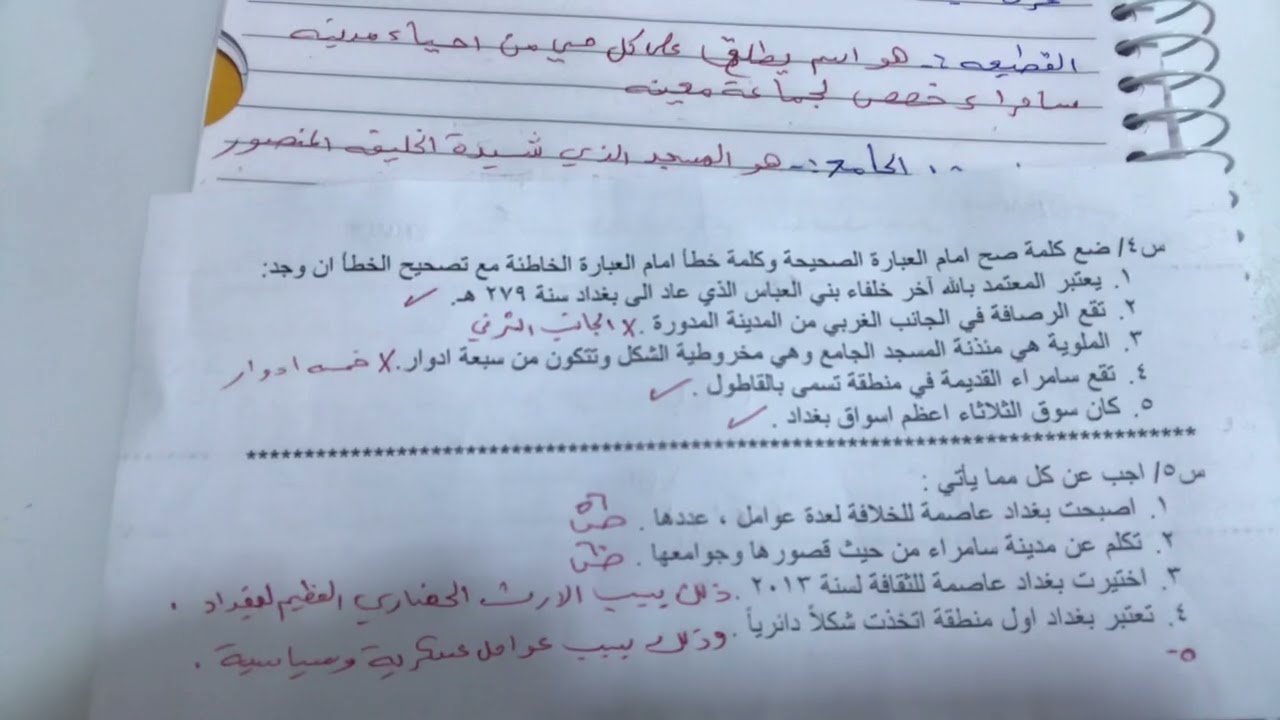 القطيعه :- هو اسم يطلق على كل حي من احياء مدينه
سامراء خصص لجماعة معينه
الجامع :- هو المسجد الذي شيدة الخليفه المنصور
س٤/ ضع كلمة صح امام العبارة الصحيحة وكلمة خطأ امام العبارة الخاطئة مع تصحيح الخطأ ان وجد:
١. يعتبر المعتمد بالله آخر خلفاء بني العباس الذي عاد الى بغداد سنة ٢٧٩ هـ. ✓
٢. تقع الرصافة في الجانب الغربي من المدينة المدورة . X الجانب الشرقي
٣. الملوية هي منذنة المسجد الجامع وهي مخروطية الشكل وتتكون من سبعة ادوار. X خمسه ادوار
٤. تقع سامراء القديمة في منطقة تسمى بالقاطول . ✓
٥. كان سوق الثلاثاء اعظم اسواق بغداد . ✓
************************************************************
س٥/ اجب عن كل مما يأتي :
١. اصبحت بغداد عاصمة للخلافة لعدة عوامل ، عددها . ص٥٦
٢. تكلم عن مدينة سامراء من حيث قصورها وجوامعها . ص٦٠
٣. اختيرت بغداد عاصمة للثقافة لسنة ٢٠١٣ . ذلك بسبب الارث الحضاري العظيم لبغداد .
٤. تعتبر بغداد اول منطقة اتخذت شكلاً دائرياً . وذلك بسبب عوامل عسكرية وسياسية .
٥-